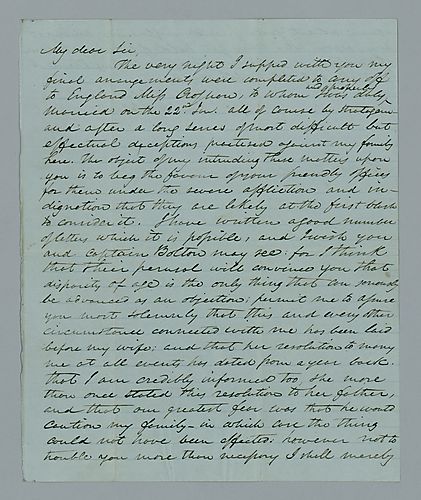 My dear Sir,
The very night I supped with you my
final arrangements were completed to carry off
to England Miss Crosnon, to whom I was duly and properly
married on the 22d Inr. all of course by stratagem
and after a long series of most difficult but
effectual deceptions practised against my family
here. The object of my intruding these matters upon
you is to beg the favour of your friendly offices
for them under the severe affliction and in-
dignation that they are likely at the first blush
to consider it. I have written a good number
of letters which it is possible, and I wish you
and Captain Bolton may see: for I think
that their perusal will convince you that
disparity of age is the only thing that can soundly
be advanced as an objection; permit me to assure
you most solemnly that this and every other
circumstance connected with me has been laid
before my wife: and that her resolution to marry
me at all events has dated from a year back.
that I am credibly informed too, she more
than once stated this resolution to her father,
and that our greatest fear was that he would
caution my family - in which case the thing
could not have been effected: however not to
trouble you more than necessary I shall merely